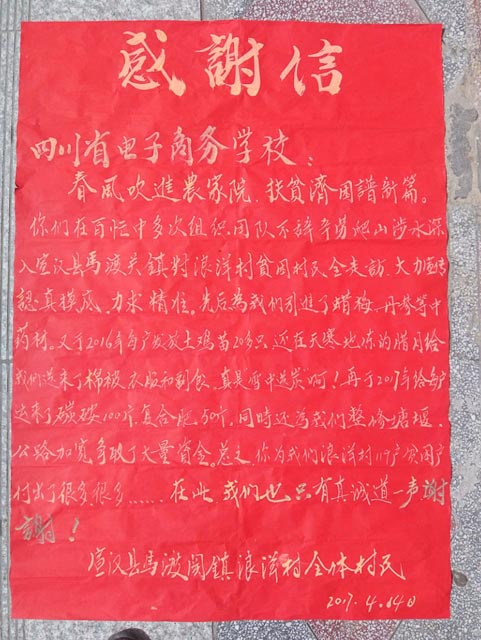 感謝信
四川省电子商务学校：
春風吹進農家院，扶貧濟困譜新篇。
你们在百忙中多次组织团队不辞辛劳爬山涉水深
入宣汉县馬渡关鎮对浪洋村貧困村民全面走訪，大力宣传
認真摸底，力求精准。先后為我们引進了蜡梅、丹参等中
药材。又于2016年每户发放土鸡苗20多只，还在天寒地冻的腊月给
我们送来了棉被、衣服和副食，真是雪中送炭啊！再于2017年给每户
送来了碳铵100斤复合肥50斤，同时还为我们整修塘堰，
公路加宽争取了大量資金。总之，你为我们浪洋村117户贫困户
付出了很多，很多……在此，我们也只有真诚道一声謝
謝！
宣汉县馬渡関鎮浪洋村全体村民
2017.4.14日